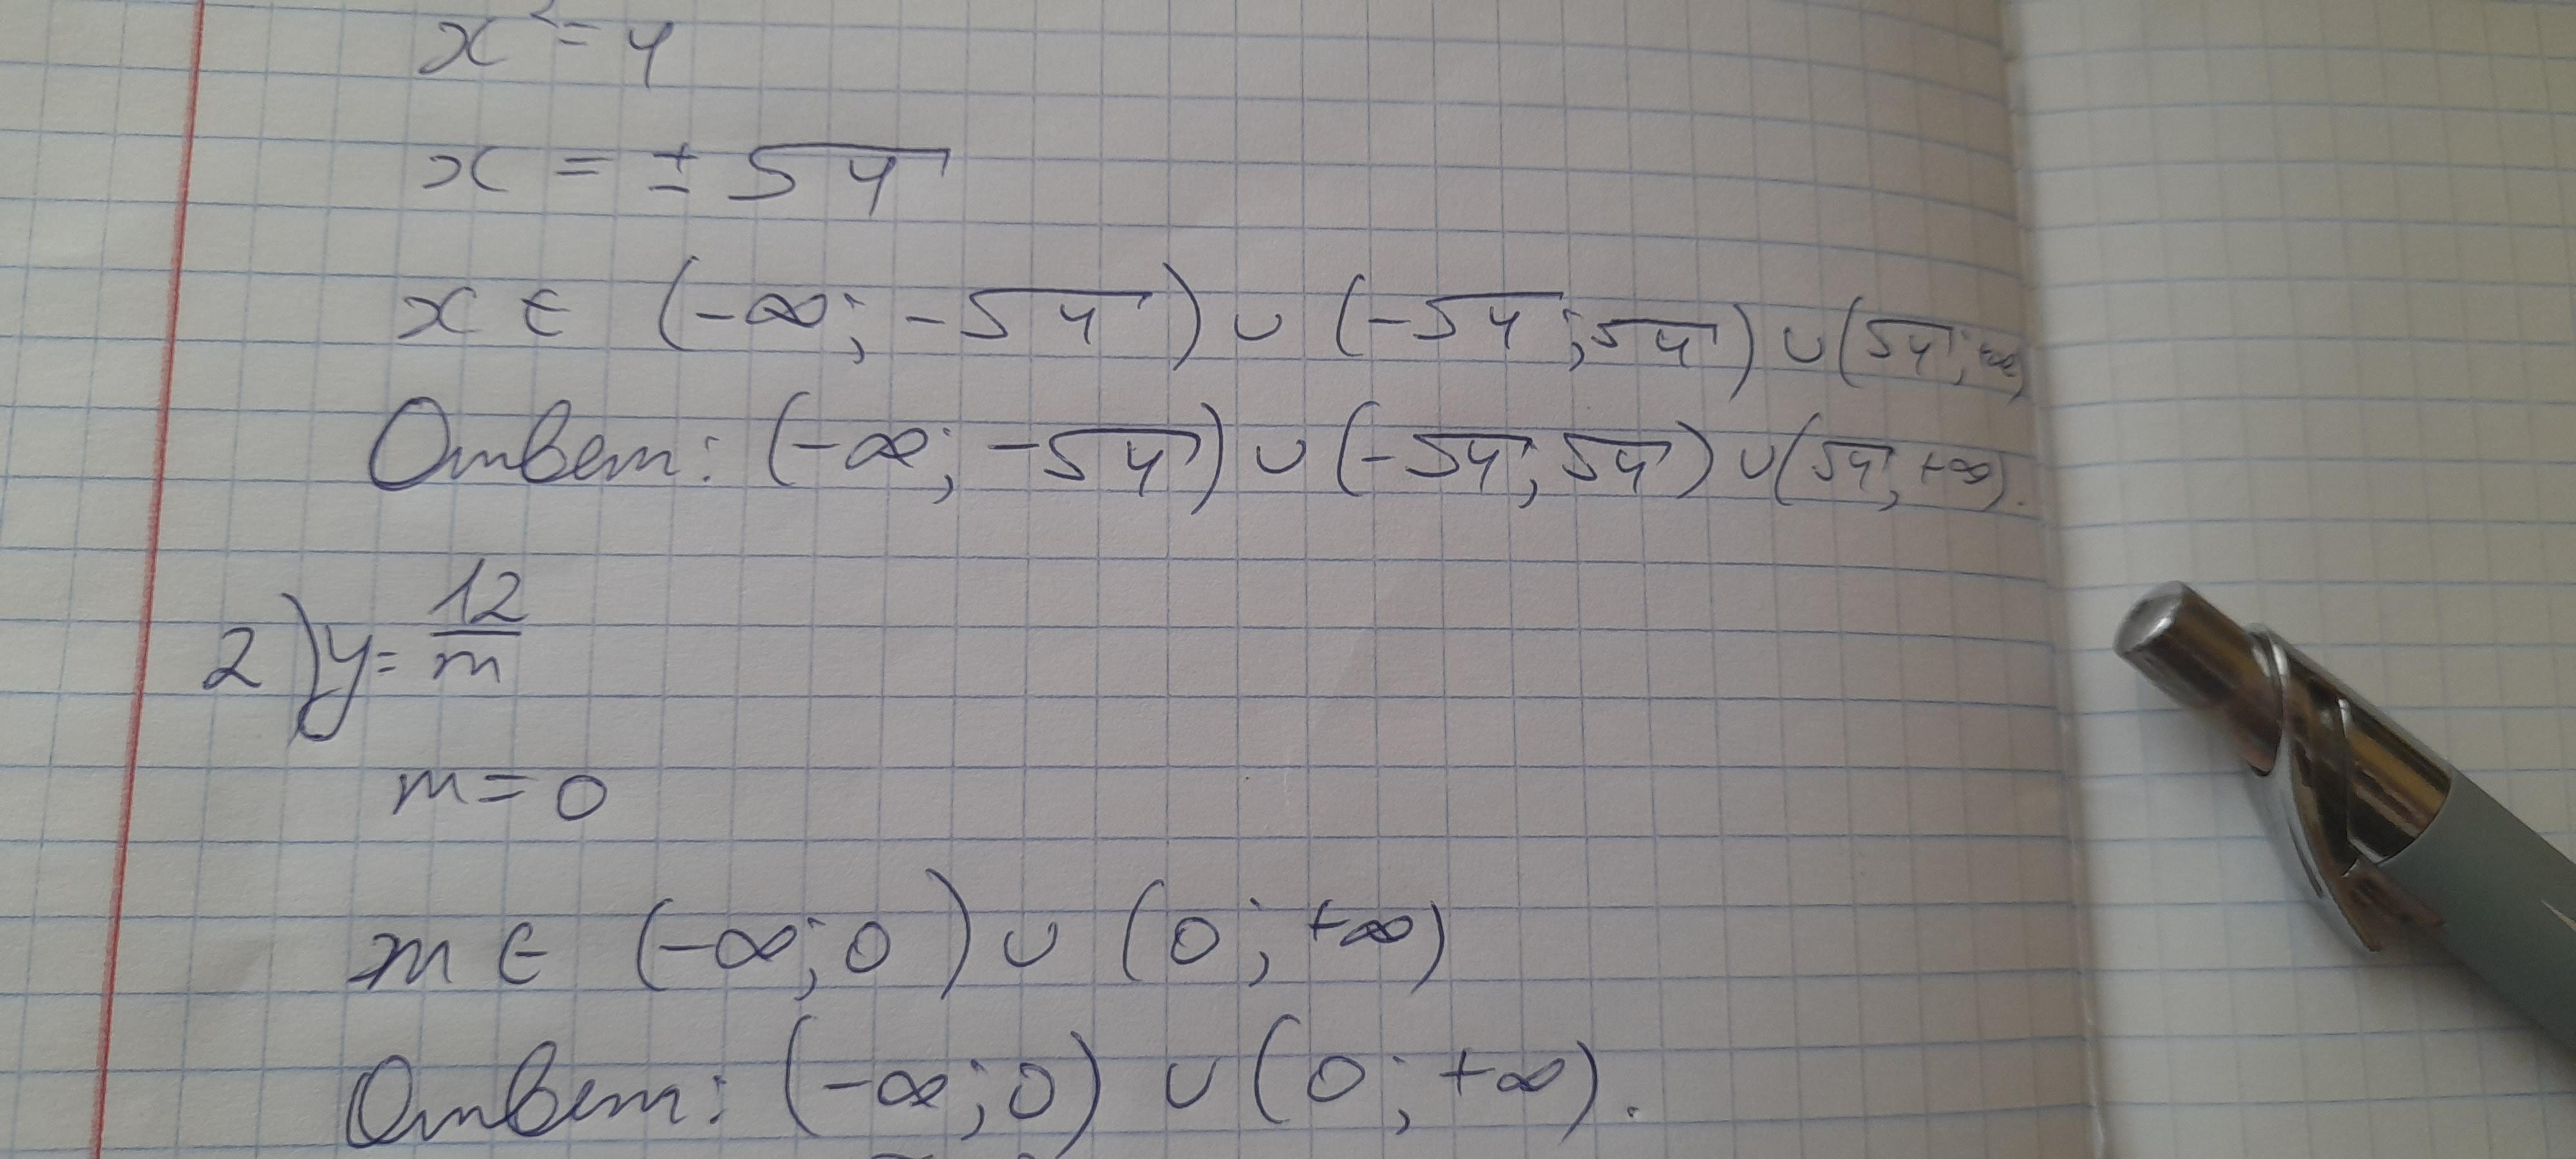 x² = 4
x = ± √4
x ∈ (-∞; -√4) ∪ (-√4; √4) ∪ (√4; +∞)
Ответ: (-∞; -√4) ∪ (-√4; √4) ∪ (√4; +∞).
2) y = 12/m
m = 0
m ∈ (-∞; 0) ∪ (0; +∞)
Ответ: (-∞; 0) ∪ (0; +∞).